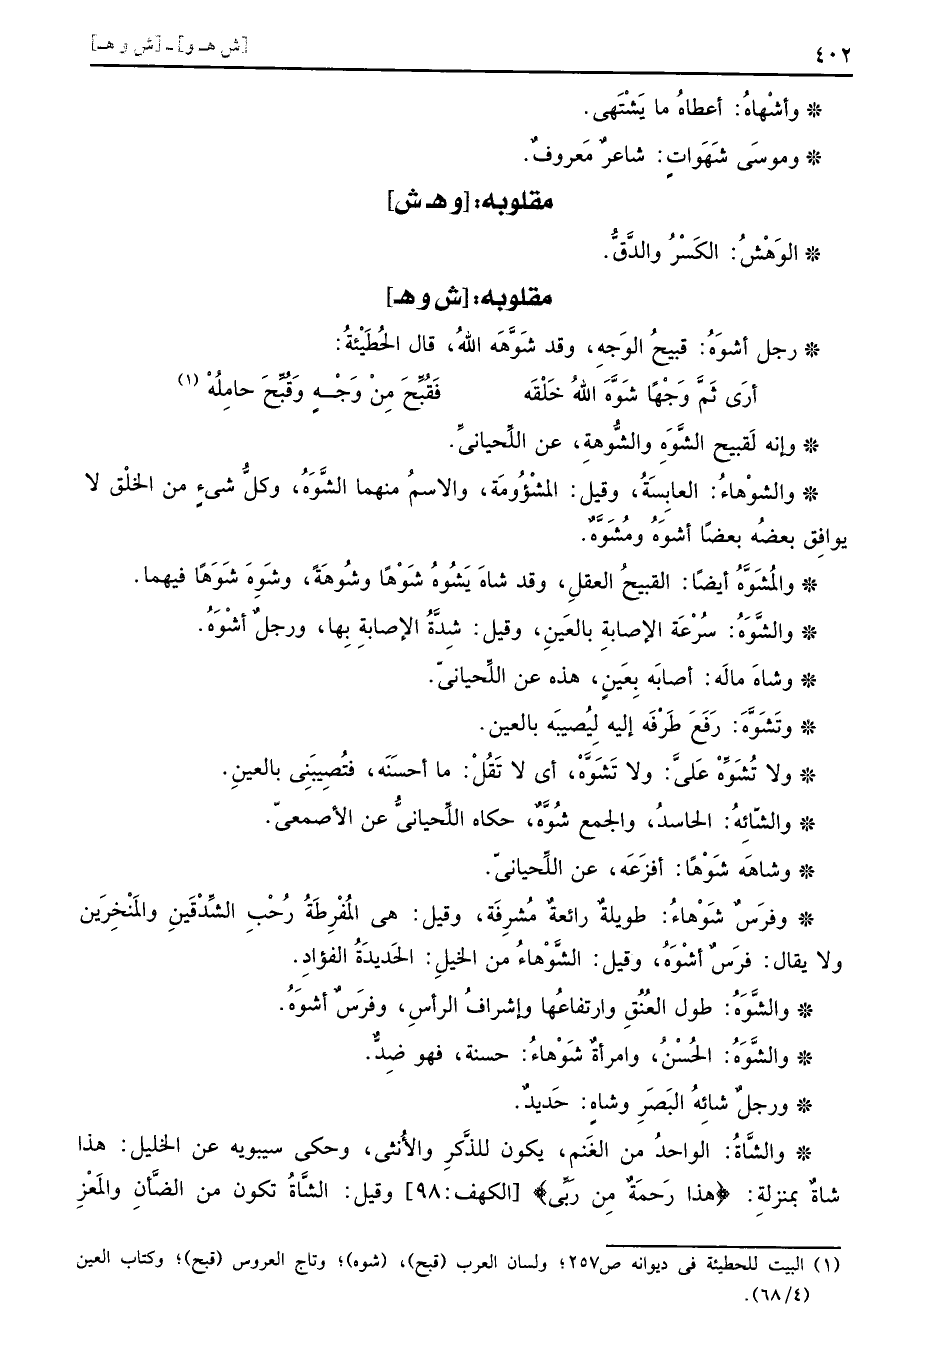 ٤٠٢ [ش هـ و] - [ش و هـ]
* وأشْهاهُ: أعطاهُ ما يَشْتَهى.
* وموسَى شَهَوَاتٍ: شاعرٌ مَعروفٌ.
مقلوبه: [و هـ ش]
* الوَهْشُ: الكَسْرُ والدَّقُّ.
مقلوبه: [ش و هـ]
* رجل أشوَهُ: قبيحُ الوَجهِ، وقد شَوَّهَه اللهُ، قال الحُطَيْئةُ:
أرَى ثَمَّ وَجْهًا شَوَّهَ اللهُ خَلْقَه فَقُبِّحَ مِنْ وَجْـــهٍ وَقُبِّحَ حامِلُهْ (١)
* وإنه لَقبيح الشَّوَهِ والشُّوهةِ، عن اللِّحيانىِّ.
* والشوْهاءُ: العابِسةُ، وقيل: المَشْؤُومَة، والاسمُ منهما الشَّوَهُ، وكلُّ شىءٍ من الخلْق لا
يوافِق بعضُه بعضًا أشوَهُ ومُشَوَّهٌ.
* والمُشَوَّهُ أيضًا: القبيحُ العقلِ، وقد شاهَ يَشُوهُ شَوْهًا وشُوهَةً، وشَوِهَ شَوَهًا فيهما.
* والشَّوَهُ: سُرْعَة الإصابةِ بالعَينِ، وقيل: شِدَّةُ الإصابةِ بِها، ورجلٌ أشْوَهُ.
* وشاهَ مالَه: أصابَه بِعَينٍ، هذه عن اللِّحيانىّ.
* وتَشَوَّهَ: رَفَعَ طَرْفَه إليه لِيُصيبَه بالعين.
* ولا تُشَوِّهْ عَلىَّ: ولا تَشَوَّهْ، أى لا تَقُلْ: ما أحسَنَه، فتُصِيبَنِى بالعينِ.
* والشّائِهُ: الحاسدُ، والجمع شُوَّهٌ، حكاه اللِّحيانىُّ عن الأصمعىّ.
* وشاهَه شَوْهًا: أفزَعَه، عن اللِّحيانىّ.
* وفرَسٌ شَوْهاءُ: طويلةٌ رائعةٌ مُشرِفَة، وقيل: هى المُفْرِطَةُ رُحْبِ الشِّدْقَينِ والمَنْخِرَين
ولا يقال: فرَسٌ أشْوَهُ، وقيل: الشَّوْهاءُ من الخيلِ: الحَديدَةُ الفؤادِ.
* والشَّوَهُ: طول العُنُقِ وارتفاعُها وإشرافُ الرأسِ، وفرَسٌ أشوَهُ.
* والشَّوَهُ: الحُسْنُ، وامرأةٌ شَوْهاءُ: حسنة، فهو ضِدٌّ.
* ورجلٌ شائهُ البَصَرِ وشاهٍ: حَديدٌ.
* والشَّاةُ: الواحدُ من الغَنم، يكون للذَّكرِ والأُنثى، وحكى سيبويه عن الخليل: هذا
شاةٌ بمنزلة: ﴿هذا رَحمَةٌ مِن رَبِّى﴾ [الكهف:٩٨] وقيل: الشَّاةُ تكون من الضَّأنِ والمَعْزِ
(١) البيت للحطيئة فى ديوانه ص٢٥٧؛ ولسان العرب (قبح)، (شوه)؛ وتاج العروس (قبح)؛ وكتاب العين
(٦٨/٤).